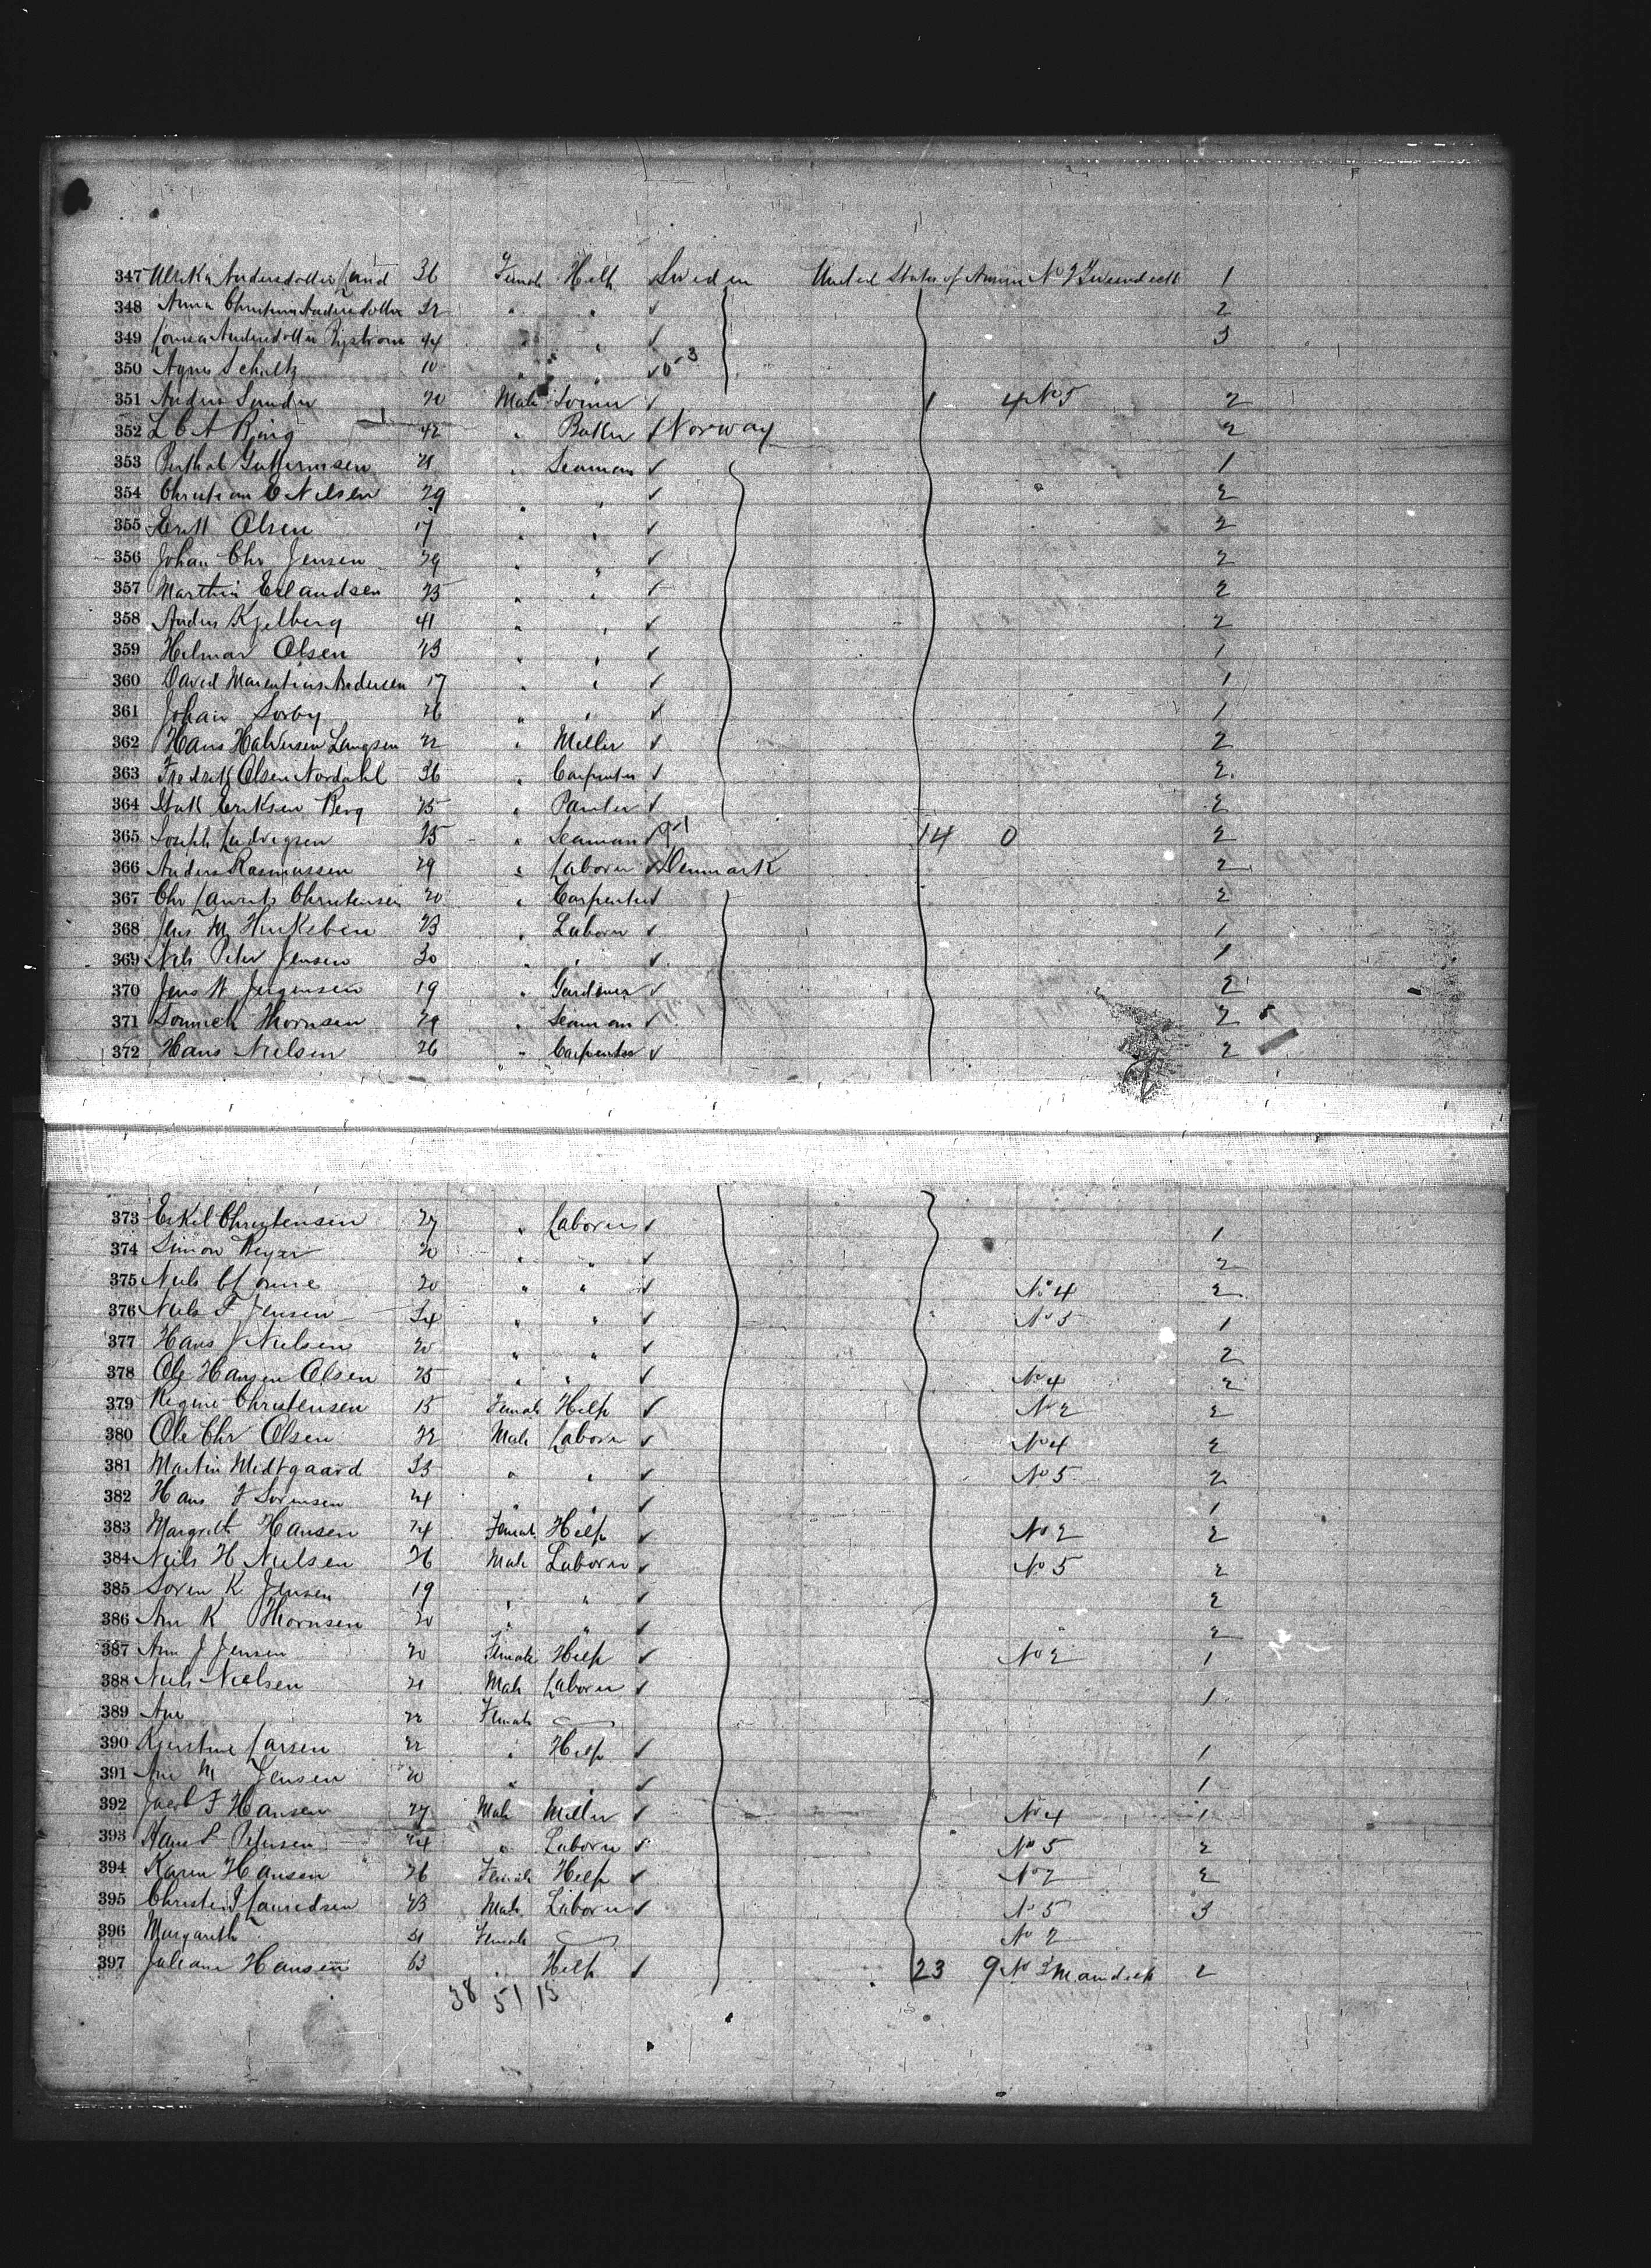 347 Ulrika Andersdotter Lund 36 Female Help Sweden United States of Americ No 2 1
348 Anna Christina Andersdotter 32 " " ✓ 2
349 Lovisa Andersdotter 44 " " ✓ 3
350 Agnes Schultz 10 " " ✓
351 Anders 20 Male ✓ 4 No 5 2
352 L C A Ring 42 " Baker ✓ Norway 2
353 21 " Seaman ✓ 1
354 Christian E Nilsen 29 " " ✓ 2
355 Erik Olsen 17 " " ✓ 2
356 Johan Chr Jensen 29 " " ✓ 2
357 Marthin Erlandsen 25 " " ✓ 2
358 Anders Kjelberg 41 " " ✓ 2
359 Helmar Olsen 23 " " ✓ 1
360 David Marentius Andersen 17 " " ✓ 1
361 Johan Sorby 26 " " ✓ 1
362 Hans Halvorsen Langsen 22 " Miller ✓ 2
363 Fredrik Olsen Nordahl 36 " Carpenter ✓ 2
364 Eriksen Berg 25 " Panter ✓ 2
365 Joseph Ludvigsen 25 " Seaman ✓ 14 0 2
366 Anders Rasmussen 29 " Laborer ✓ Denmark 2
367 Chr Laurits Christensen 20 " Carpenter ✓ 2
368 Jens M 23 " Laborer ✓ 1
369 Nils Peter Jensen 30 " " ✓ 1
370 Jens W Jurgensen 19 " Gardiner ✓ 2
371 Sonnich Thomsen 29 " Seaman ✓ 2
372 Hans Nielsen 26 " Carpenter ✓ 2
373 Eskil Christensen 27 " Laborer ✓ 1
374 Simon 20 " " ✓ 2
375 Niels 20 " " ✓ No 4 2
376 Niels F Jensen 34 " " ✓ No 5 1
377 Hans J Nielsen 20 " " ✓ 2
378 Ole Hansen Olsen 25 " " ✓ No 4 2
379 Regine Christensen 15 Female Help ✓ No 2 2
380 Ole Chr Olsen 22 Male Laborer ✓ No 4 2
381 Martin Midtgaard 33 " " ✓ No 5 2
382 Hans F Sorensen 24 " " ✓ 1
383 Margreth Hansen 24 Female Help ✓ No 2 2
384 Neils H Nielsen 26 Male Laborer ✓ No 5 2
385 Soren K Jensen 19 " " ✓ 2
386 Ane K Thomsen 20 " " ✓ 2
387 Ane J Jensen 20 Female Help ✓ No 2 1
388 Niels Nielsen 21 Male Laborer ✓ 1
389 Ane 22 Female
390 Kjerstine Larsen 22 " Help ✓ 1
391 Ane M Jensen 20 " " ✓ 1
392 Jacob F Hansen 27 Male Miller ✓ No 4 1
393 Hans P Petersen 44 " Laborer ✓ No 5 2
394 Karen Hansen 26 Female Help ✓ No 2 2
395 Christen J Lauridsen 23 Male Laborer ✓ No 5 3
396 Margareth 21 Female No 2
397 Juliane Hansen 63 " Help ✓ 23 9 No 2 Maindeck 2
38 51 13